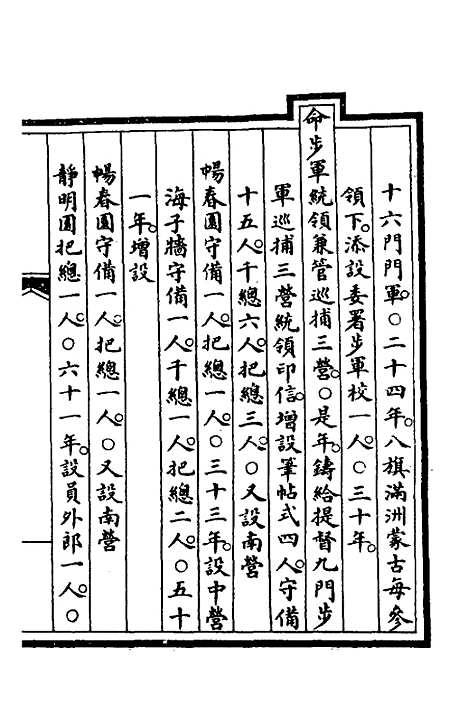 十六門門軍。○二十四年。八旗滿洲蒙古每參
領下。添設委署步軍校一人。○三十年。
命步軍統領兼管巡捕三營。○是年。鑄給提督九門步
軍巡捕三營統領印信。增設筆帖式四人。守備
十五人。千總六人。把總三人。○又設南營
暢春園守備一人。把總一人。○三十三年。設中營
海子牆守備一人。千總一人。把總二人。○五十
一年。增設
暢春園守備一人。把總一人。○又設南營
靜明園把總一人。○六十一年。設員外郎一人。○